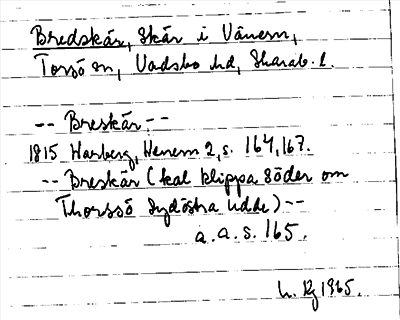 Bredskär, skär i Vänern,
Torsö sn, Vadsbo hd, Skarab. l.
-- Breskär --
1815 Warberg, Wenern 2, s. 164, 167.
-- Breskär (kal klippa söder om
Thorssö Sydöstra Udde) --
a. a. s. 165.
1965.